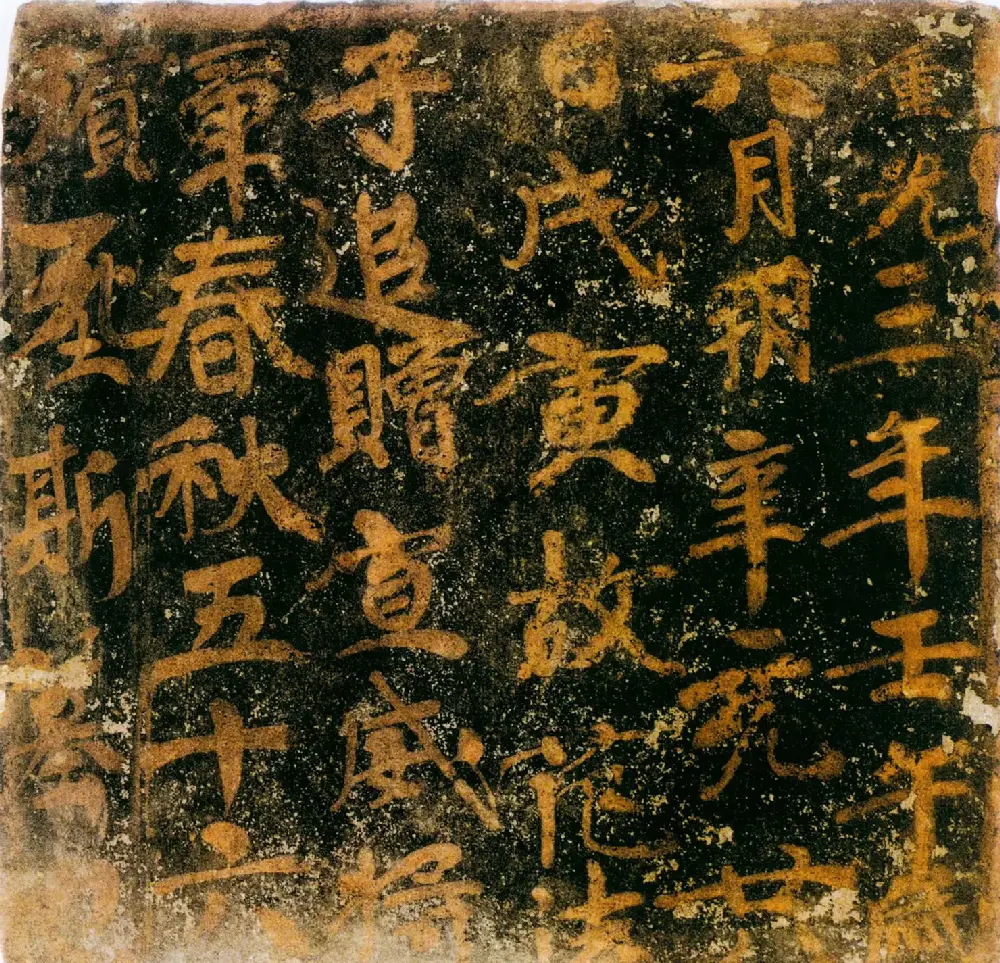 重光三年壬午歲
六月朔辛亥廿八
日戊寅故范法
子追贈宣威將
軍春秋五十六
殯埿斯墓